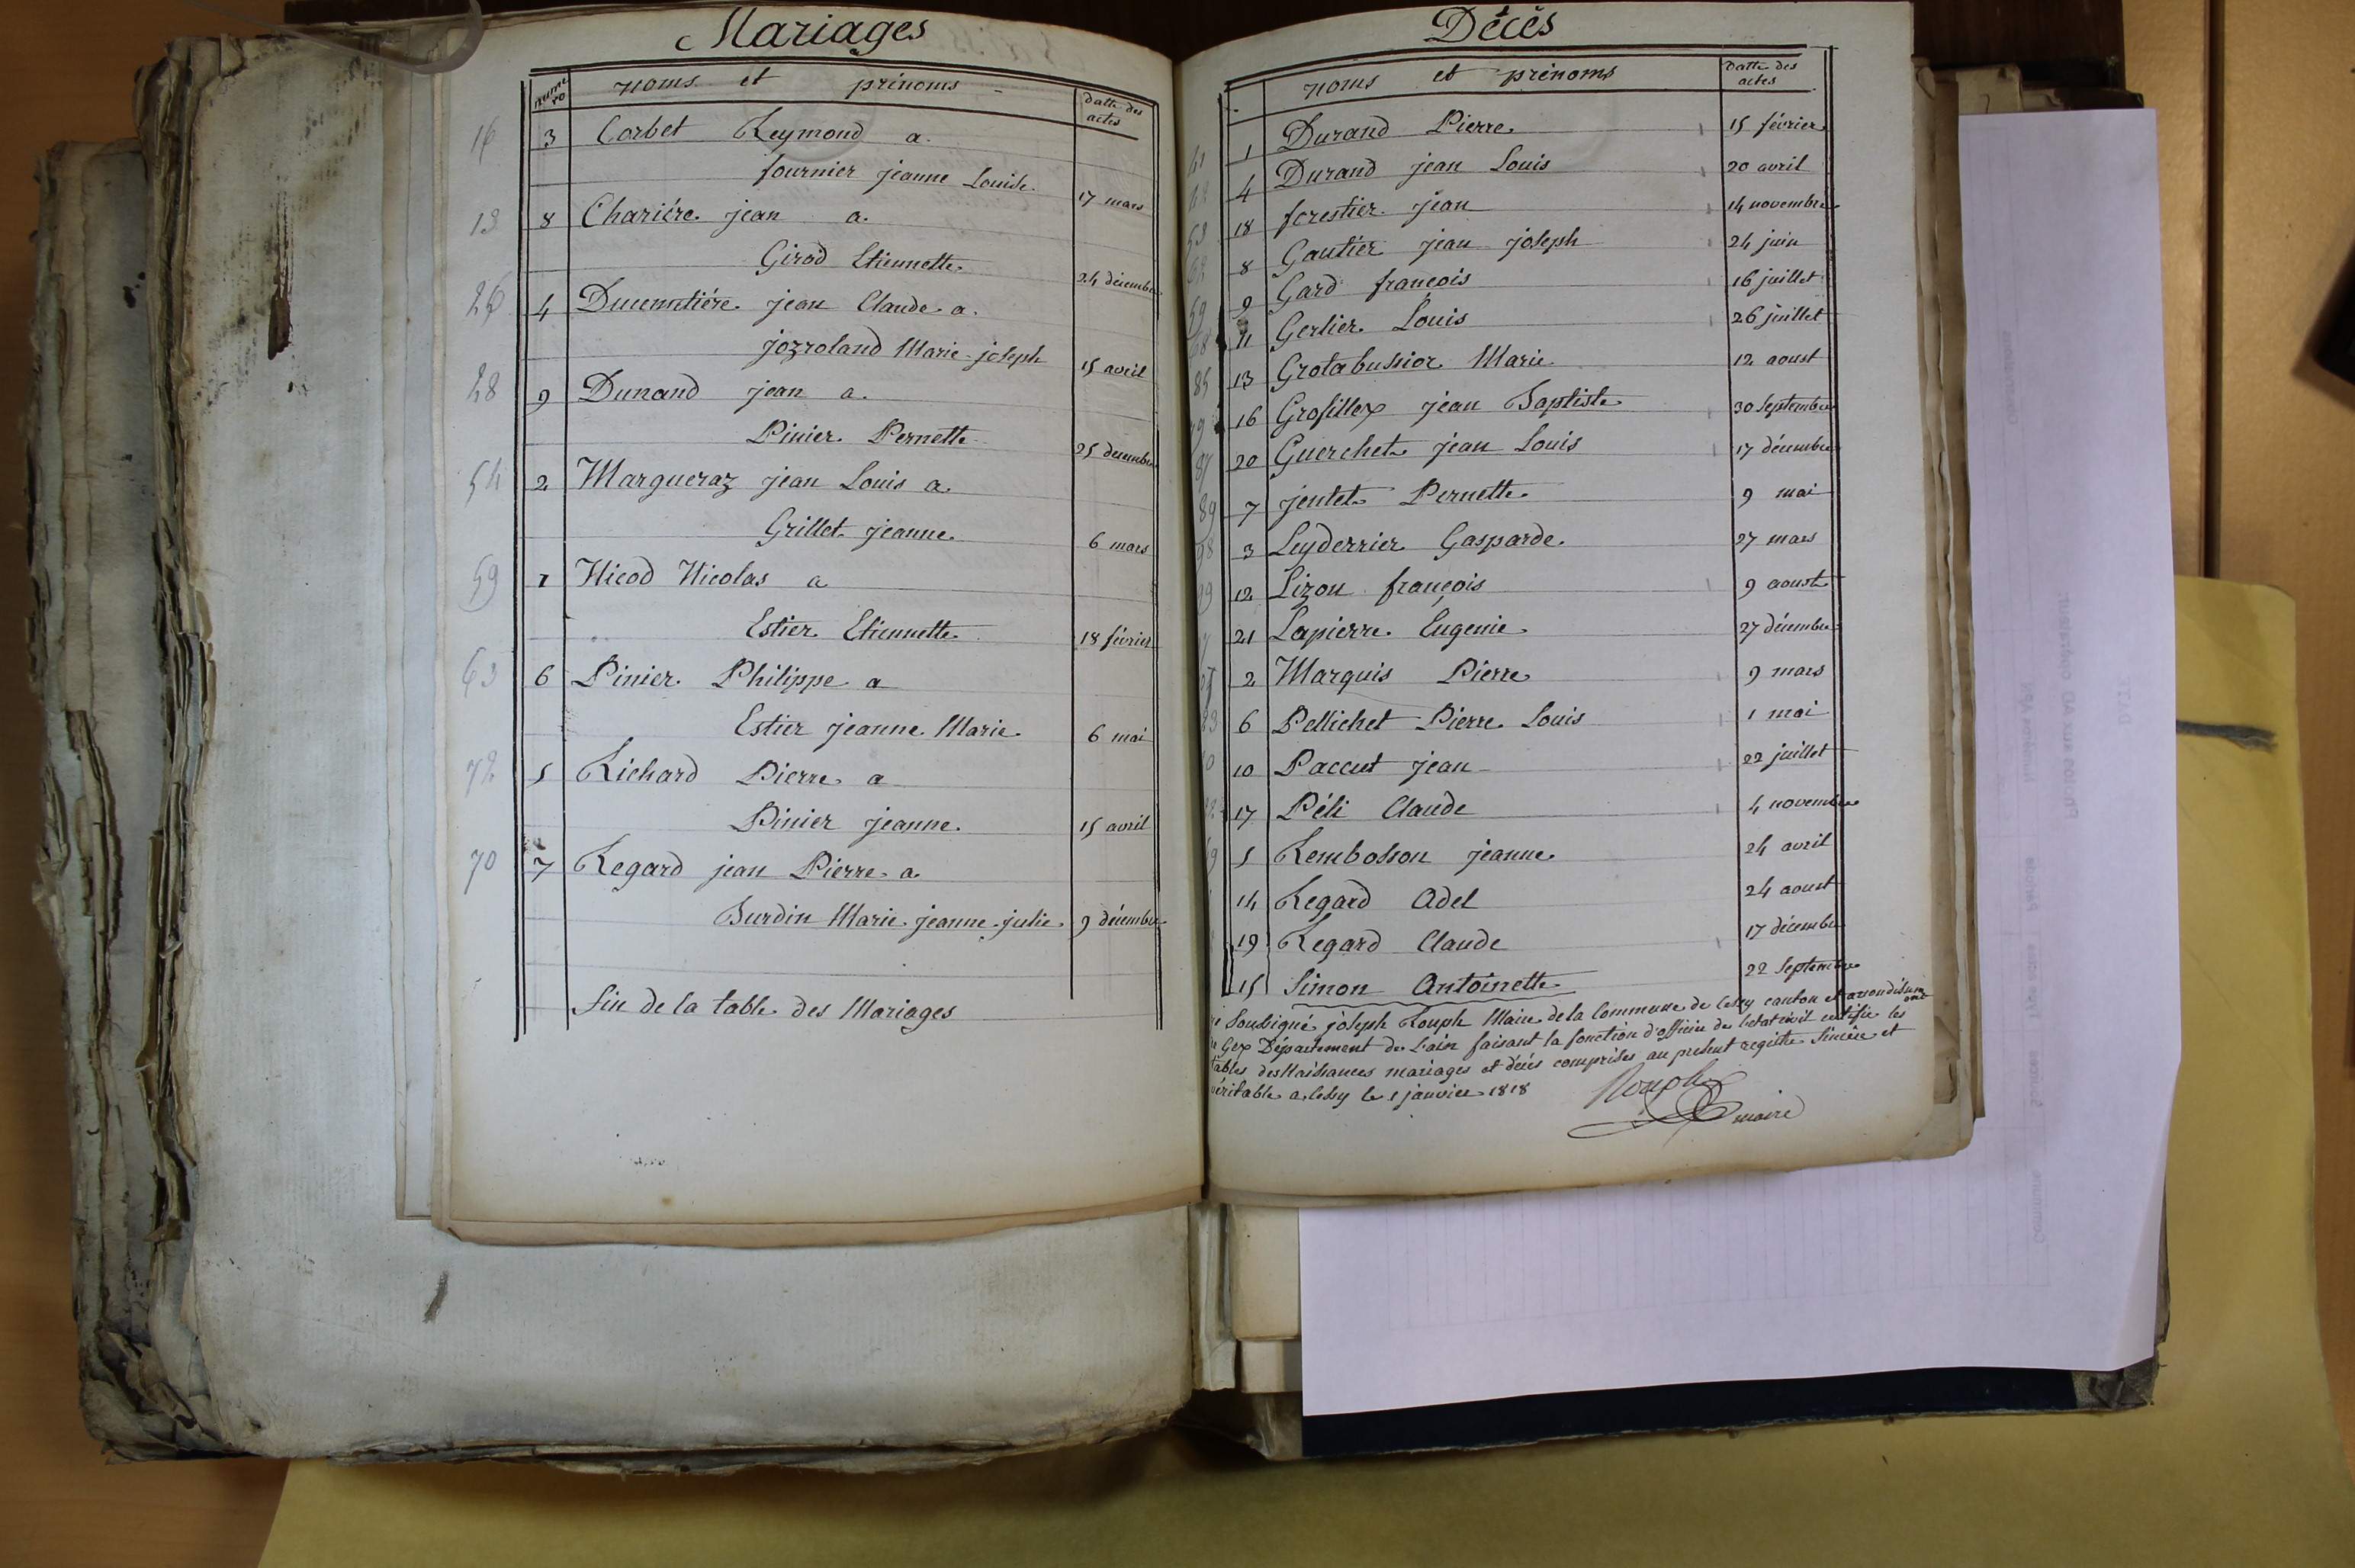 Mariages
numero
noms et prénoms
datte des
actes
16 3 Corbet Reymond a.
fournier jeanne Louise. 17 mars
13 8 Chariére jean a.
Girod Etiennette. 24 décembre
26 4 jean Claude a.
jozroland Marie-joseph 15 avril
28 9 Dunand jean a.
Pinier Pernette 25 décembre
54 2 Margueraz jean Louis a.
Grillet jeanne. 6 mars
59 1 Nicod Nicolas a
Estier Etiennette. 18 février
63 6 Pinier Philippe a
Estier jeanne Marie. 6 mai
72 5 Richard Pierre a
Pinier jeanne. 15 avril
70 7 Regard jean Pierre a.
Burdin Marie jeanne julie. 9 décembre
fin de la table des Mariages
Décès
noms et prénoms
datte des
actes
1 Durand Pierre. 15 février
4 Durand jean Louis 20 avril
18 forestier jean 14 novembre
8 Gautier jean joseph 24 juin
9 Gard francois 16 juillet
11 Gerlier Louis 26 juillet
13 Grotabussior Marie 12 aoust
16 Grosillex jean Baptiste 30 Septembre
20 Guerchet jean Louis 17 décembre
7 jentet Pernette. 9 mai
3 Leyderrier Gasparde. 27 mars
12 Lizon françois 9 aoust
21 Lapierre Eugenie 27 décembre
2 Marquis Pierre 9 mars
6 Pellichet Pierre Louis 1 mai
10 Paccut jean 22 juillet
17 Péli Claude 4 novembre
5 Rembosson jeanne 24 avril
14 Regard Adel 24 aoust
19 Regard Claude 17 décembre
15 Simon Antoinette 22 Septembre
Soussigné joseph Rouph Maire de la Commune de Cessy canton et arrondissem
ent
Gex Département de L'ain faisant la fonction d'officier de l'etat civil certifie les
tables des Naissances mariages et décès comprises au présent registre Sincère et
véritable a Cessy le 1 janvier 1818
Rouph
maire